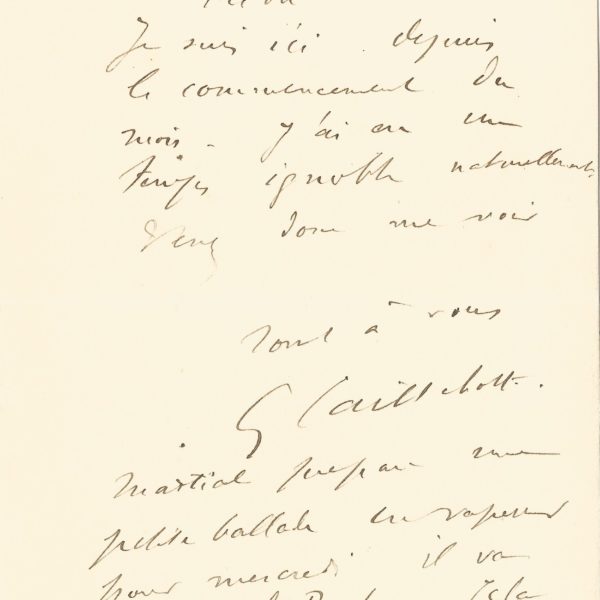 Je suis ici depuis
le commencement du
mois. J'ai eu un
temps ignoble naturellement
Venez donc me voir
Tout à vous
G Caillebotte.
Martial prépare une
petite ballade en vapeur
pour mercredi il va